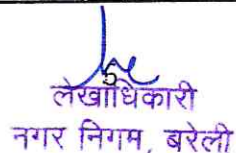 5
लेखाधिकारी
नगर निगम, बरेली